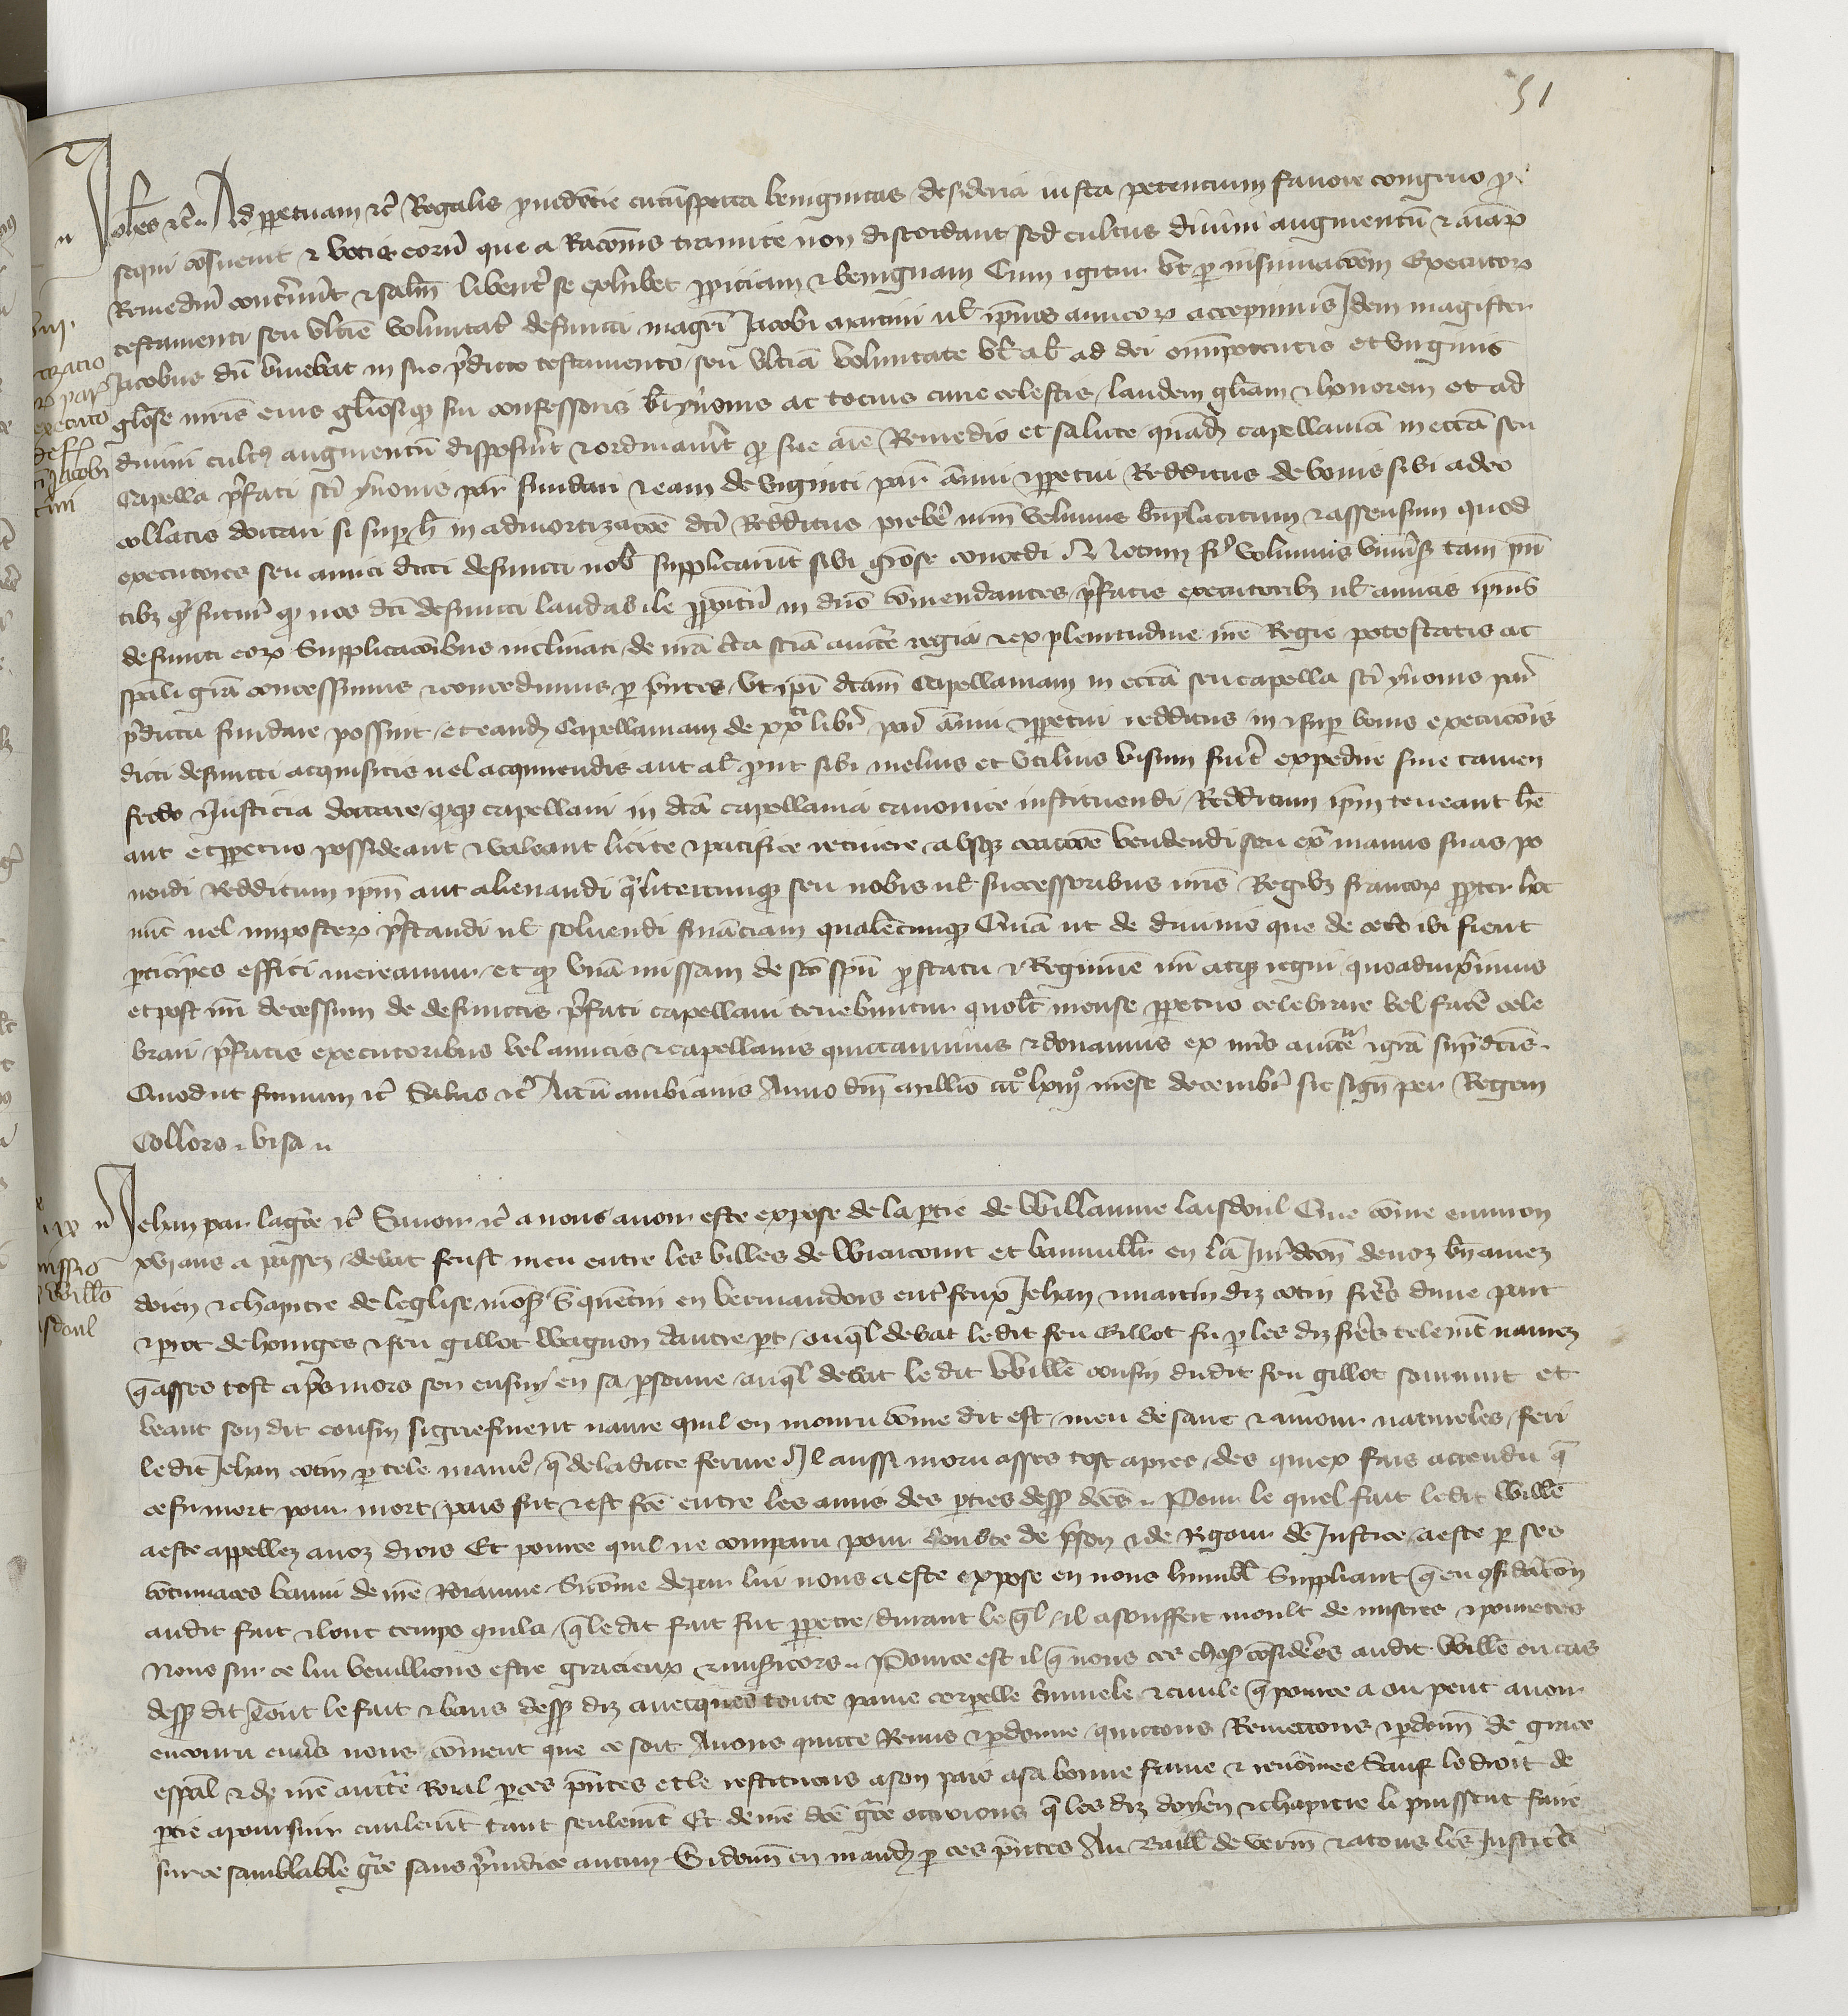 51
Johes etc. Ad perpetuam etc. Regalis providencie circunspecta benignitas desideria iusta petencium favore congruo pro
sequi consuevit et votis eorum que a Racionis tramite non discordant sed cultus divini augmentum et animarum
Remedium continent et salutem libenter se exhibet propiciam et benignam Cum igitur ut per insinuacionem Executorum
testamenti seu ultime voluntatis defuncti magistri Jacobi martini vel ipsius amicorum accepimus Idem magister
Jacobus dum vivebat in suo predicto testamento seu ultima voluntate vel al. ad dei omnipotentis et virginis
gloriose matris eius gloriosique sui confessoris beati yvonis ac tocius curie celestis laudem gloriam et honorem et ad
divini cultus augmentum disposuit et ordinavit pro sue anime Remedio et salute quandam capellaniam in ecclesia seu
Capella prefati sancti yvonis par. fundari et eam de viginti par. annui et perpetui Redditus de bonis sibi a deo
collatis dotari si super hoc in admortizacione dicti Redditus prebere nostrum velimus beneplacitum et assensum quod
executores seu amici dicti defuncti nobis supplicarunt sibi graciose concedi Notum fieri volumus universis tam presen
tibus quam futuris quod nos dicti defuncti laudabile propositum in domino commendantes prefatis executoribus vel amicis ipsius
defuncti eorum Supplicacionibus inclinati de nostra certa sciencia auctoritate regia et ex plenitudine nostre Regie potestatis ac
speciali gracia concessimus et concedimus per presentes ut ipsi dictam Capellaniam in ecclesia seu capella sancti yvonis par.
predicta fundare possint et eandem Capellaniam de xx libris par. annui et perpetui redditus in et super bonis execucionis
dicti defuncti acquisitis vel acquirendis aut al. prout sibi melius et utilius visum fuerit expedire sine tamen
feodo et Justicia dotare quodque capellani in dicta capellania canonice instituendi Redditum ipsum teneant habe
ant et perpetuo possideant et valeant licite et pacifice retinere absque coactione vendendi seu extra manus suas po
nendi Redditum ipsum aut alienandi qualitercunque seu nobis vel successoribus nostris Regibus francorum propter hoc
nunc vel imposterum prestandi vel solvendi financiam qualemcunque Quam ut de divinis que de cetero ibi fient
participes effici mereamur et quod unam missam de sancto spiritu pro statu et Regimine nostri atque regni quoad vixerimus
et post nostrum decessum de defunctis prefati capellani tenebuntur quolibet mense perpetuo celebrare vel facere cele
brari prefatis executoribus vel amicis et capellanis quictavimus et donamus ex nostris auctoritate et gracia supradictis
Quod ut firmum etc. Salvo etc. Actum ambianis Anno domini millesimo ccc lxiii mense decembris sic signata per Regem
Collors. visa
Jehan par la grace etc. Savoir etc. a nous avoir este expose de la partie de Willaume laisdoul Que comme environ
xvj ans a passez debat feust meu entre les villes de Wiencourt et vauvill. en la Juridicion de noz bien amez
doien et chapitre de leglise mons. S. quentin en vermandois entre feux Jehan et martin diz cotin freres dune part
et perrot de honiges et feu gillot Wagnon dautre part ou quel debat le dit feu Gillot fu par les diz freres telement navrez
que asses tost apres mors sen ensui en sa personne au quel debat le dit Willaume cousin dudit feu gillot sourvint et
veant son dit cousin si griefment navre quil en mouru comme dit est meu de sanc et amour natureles feri
le dit Jehan cotin par tele maniere que de la dicte ferue Il aussi moru asses tost apres des quiex fais attendu que
ce fu mort pour mort pais fut et est faicte entre les amis des parties dessus dictes Pour le quel fait ledit Willaume
a este appellez a noz drois Et pource quil ne comparu pour doubte de prison et de Rigour de Justice a este par ses
contumaces banni de nostre Roiaume Si comme de par lui nous a este expose en nous humblement Suppliant que en consideracion
audit fait et lonc temps quil a que le dit fait fut perpetre durant le quel il a souffert moult de miseres et povretes
Nous sur ce lui veuillions estre gracieux et misericors Pource est il que nous ces choses considerees audit Willaume ou cas
dessus dit Tout le fait et bans dessus diz avecques toute paine corporelle criminele et civile que pource a ou peut avoir
encouru envers nous coment que ce soit Avons quicte Remis et pardonne quictons Remettons et pardonnons de grace
especial et de nostre auctorite Roial par ces presentes et le restituons a son pais a sa bonne fame et renommee Sauf le droit de
partie a poursuir civilement tant seulement Et de nostre dicte grace ottroions que les diz doyen et chapitre li puissent faire
sur ce samblable grace sans preiudice aucun Si donnons en mandement par ces presentes Au Bailli de verm. et a tous les Justiciers